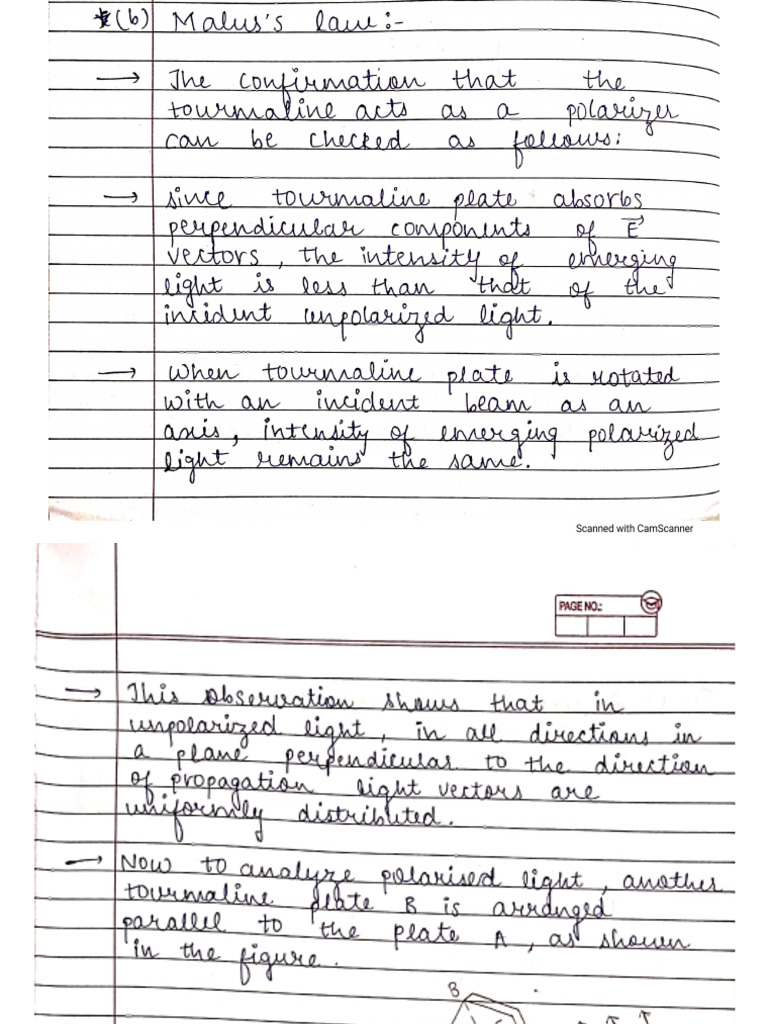 (b) Malus's law:-
→ The confirmation that the
tourmaline acts as a polarizer
can be checked as follows:
→ since tourmaline plate absorbs
perpendicular components of E⃗
vectors, the intensity of emerging
light is less than that of the
incident unpolarized light.
→ When tourmaline plate is rotated
with an incident beam as an
axis, intensity of emerging polarized
light remains the same.
Scanned with CamScanner
PAGE NO.:
→ This observation shows that in
unpolarized light, in all directions in
a plane perpendicular to the direction
of propagation light vectors are
uniformly distributed.
→ Now to analyze polarised light, another
tourmaline plate B is arranged
parallel to the plate A, as shown
in the figure.
B